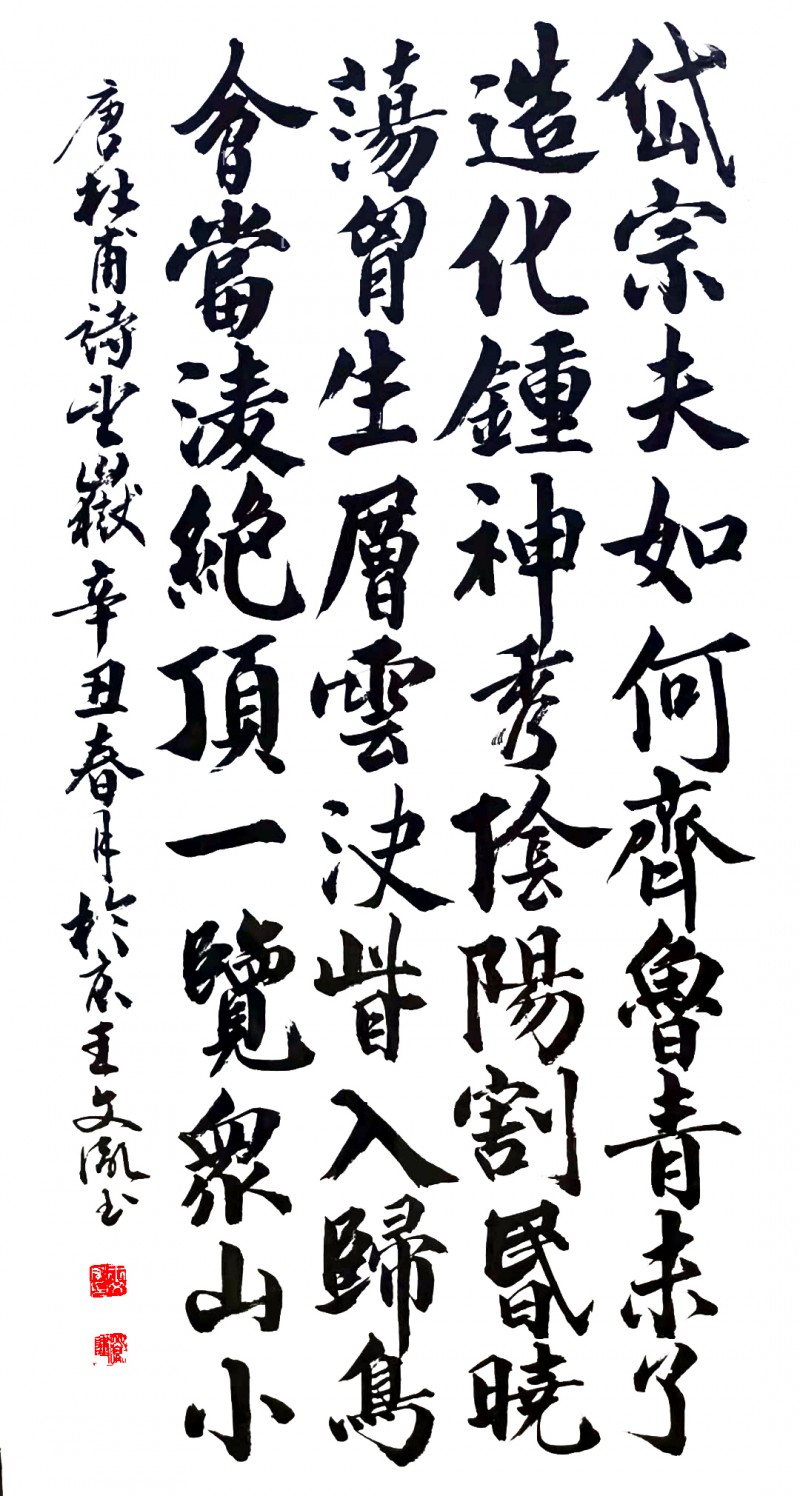 岱宗夫如何齊魯青未了
造化鍾神秀陰陽割昬曉
蕩胷生層雲決眥入歸鳥
會當淩絶頂一覽衆山小
唐杜甫詩望嶽辛丑春月於京王文书